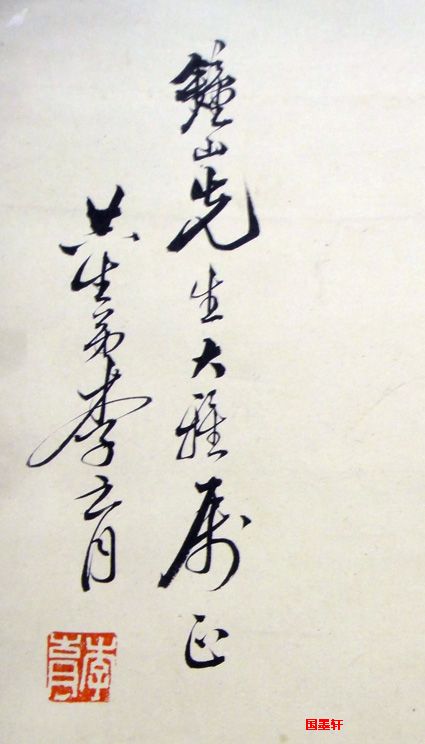 鐘山先生大雅属正
某生弟李育
李育
国墨轩